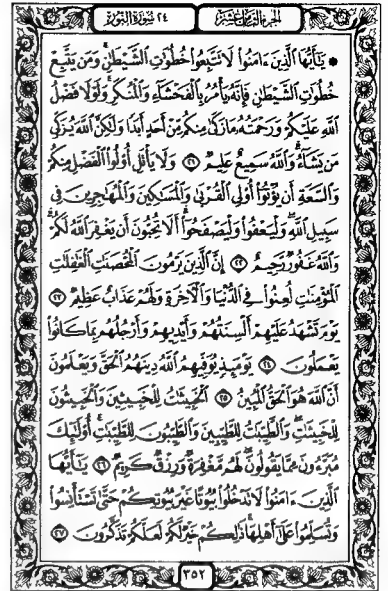 الجزء الثامن عشر ٢٤ سورة النور
* يَٰٓأَيُّهَا الَّذِينَ ءَامَنُوا۟ لَا تَتَّبِعُوا۟ خُطُوَٰتِ الشَّيْطَٰنِ ۚ وَمَن يَتَّبِعْ
خُطُوَٰتِ الشَّيْطَٰنِ فَإِنَّهُۥ يَأْمُرُ بِالْفَحْشَآءِ وَالْمُنكَرِ ۚ وَلَوْلَا فَضْلُ
اللَّهِ عَلَيْكُمْ وَرَحْمَتُهُۥ مَا زَكَىٰ مِنكُم مِّنْ أَحَدٍ أَبَدًا وَلَٰكِنَّ اللَّهَ يُزَكِّى
مَن يَشَآءُ ۗ وَاللَّهُ سَمِيعٌ عَلِيمٌ ٢١ وَلَا يَأْتَلِ أُو۟لُوا۟ الْفَضْلِ مِنكُمْ
وَالسَّعَةِ أَن يُؤْتُوٓا۟ أُو۟لِى الْقُرْبَىٰ وَالْمَسَٰكِينَ وَالْمُهَٰجِرِينَ فِى
سَبِيلِ اللَّهِ ۖ وَلْيَعْفُوا۟ وَلْيَصْفَحُوٓا۟ ۗ أَلَا تُحِبُّونَ أَن يَغْفِرَ اللَّهُ لَكُمْ ۗ
وَاللَّهُ غَفُورٌ رَّحِيمٌ ٢٢ إِنَّ الَّذِينَ يَرْمُونَ الْمُحْصَنَٰتِ الْغَٰفِلَٰتِ
الْمُؤْمِنَٰتِ لُعِنُوا۟ فِى الدُّنْيَا وَالْءَاخِرَةِ وَلَهُمْ عَذَابٌ عَظِيمٌ ٢٣
يَوْمَ تَشْهَدُ عَلَيْهِمْ أَلْسِنَتُهُمْ وَأَيْدِيهِمْ وَأَرْجُلُهُم بِمَا كَانُوا۟
يَعْمَلُونَ ٢٤ يَوْمَئِذٍ يُوَفِّيهِمُ اللَّهُ دِينَهُمُ الْحَقَّ وَيَعْلَمُونَ
أَنَّ اللَّهَ هُوَ الْحَقُّ الْمُبِينُ ٢٥ الْخَبِيثَٰتُ لِلْخَبِيثِينَ وَالْخَبِيثُونَ
لِلْخَبِيثَٰتِ ۖ وَالطَّيِّبَٰتُ لِلطَّيِّبِينَ وَالطَّيِّبُونَ لِلطَّيِّبَٰتِ ۚ أُو۟لَٰٓئِكَ
مُبَرَّءُونَ مِمَّا يَقُولُونَ ۖ لَهُم مَّغْفِرَةٌ وَرِزْقٌ كَرِيمٌ ٢٦ يَٰٓأَيُّهَا
الَّذِينَ ءَامَنُوا۟ لَا تَدْخُلُوا۟ بُيُوتًا غَيْرَ بُيُوتِكُمْ حَتَّىٰ تَسْتَأْنِسُوا۟
وَتُسَلِّمُوا۟ عَلَىٰٓ أَهْلِهَا ۚ ذَٰلِكُمْ خَيْرٌ لَّكُمْ لَعَلَّكُمْ تَذَكَّرُونَ ٢٧
٣٥٢